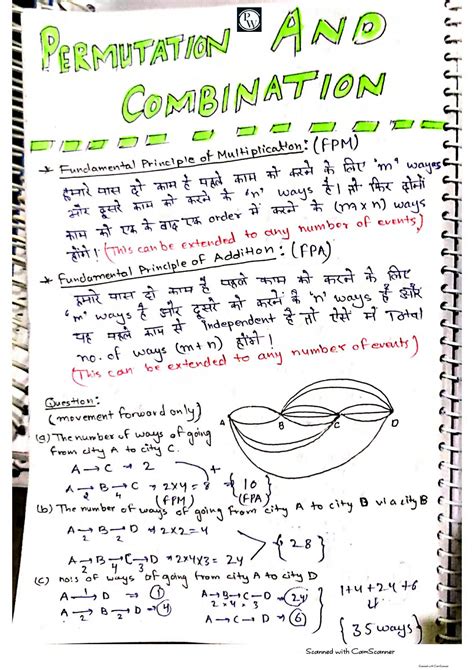 PW
PERMUTATION AND
COMBINATION
* Fundamental Principle of Multiplication: (FPM)
हमारे पास दो काम है पहले काम को करने के लिए 'm' ways
और दूसरे काम को करने के 'n' ways है। तो फिर दोनों
काम को एक के बाद एक order में करने के (m x n) ways
होंगे। (This can be extended to any number of events)
* Fundamental Principle of Addition: (FPA)
हमारे पास दो काम है पहले काम को करने के लिए
'm' ways है और दूसरे को करने के 'n' ways है और
यह पहले काम से independent है तो ऐसे में Total
no. of ways (m+n) होंगी।
(This can be extended to any number of events)
Question:
(movement forward only)
A B C D
(a) The number of ways of going
from city A to city C.
A → C → 2
+
A → B → C → 2x4 = 8 {10
2 4 (FPM) (FPA)
(b) The number of ways of going from city A to city D via city B
A → B → D → 2x2 = 4
2 2
{28}
A → B → C → D → 2x4x3 = 24
2 4 3
(c) no. of ways of going from city A to city D
A → D → 1
1
A → B → C → D → 24
2 x 4 x 3
1+4+24+6
A → B → D → 4
2 2
A → C → D → 6
{35 ways}
Scanned with CamScanner
Scanned with CamScanner